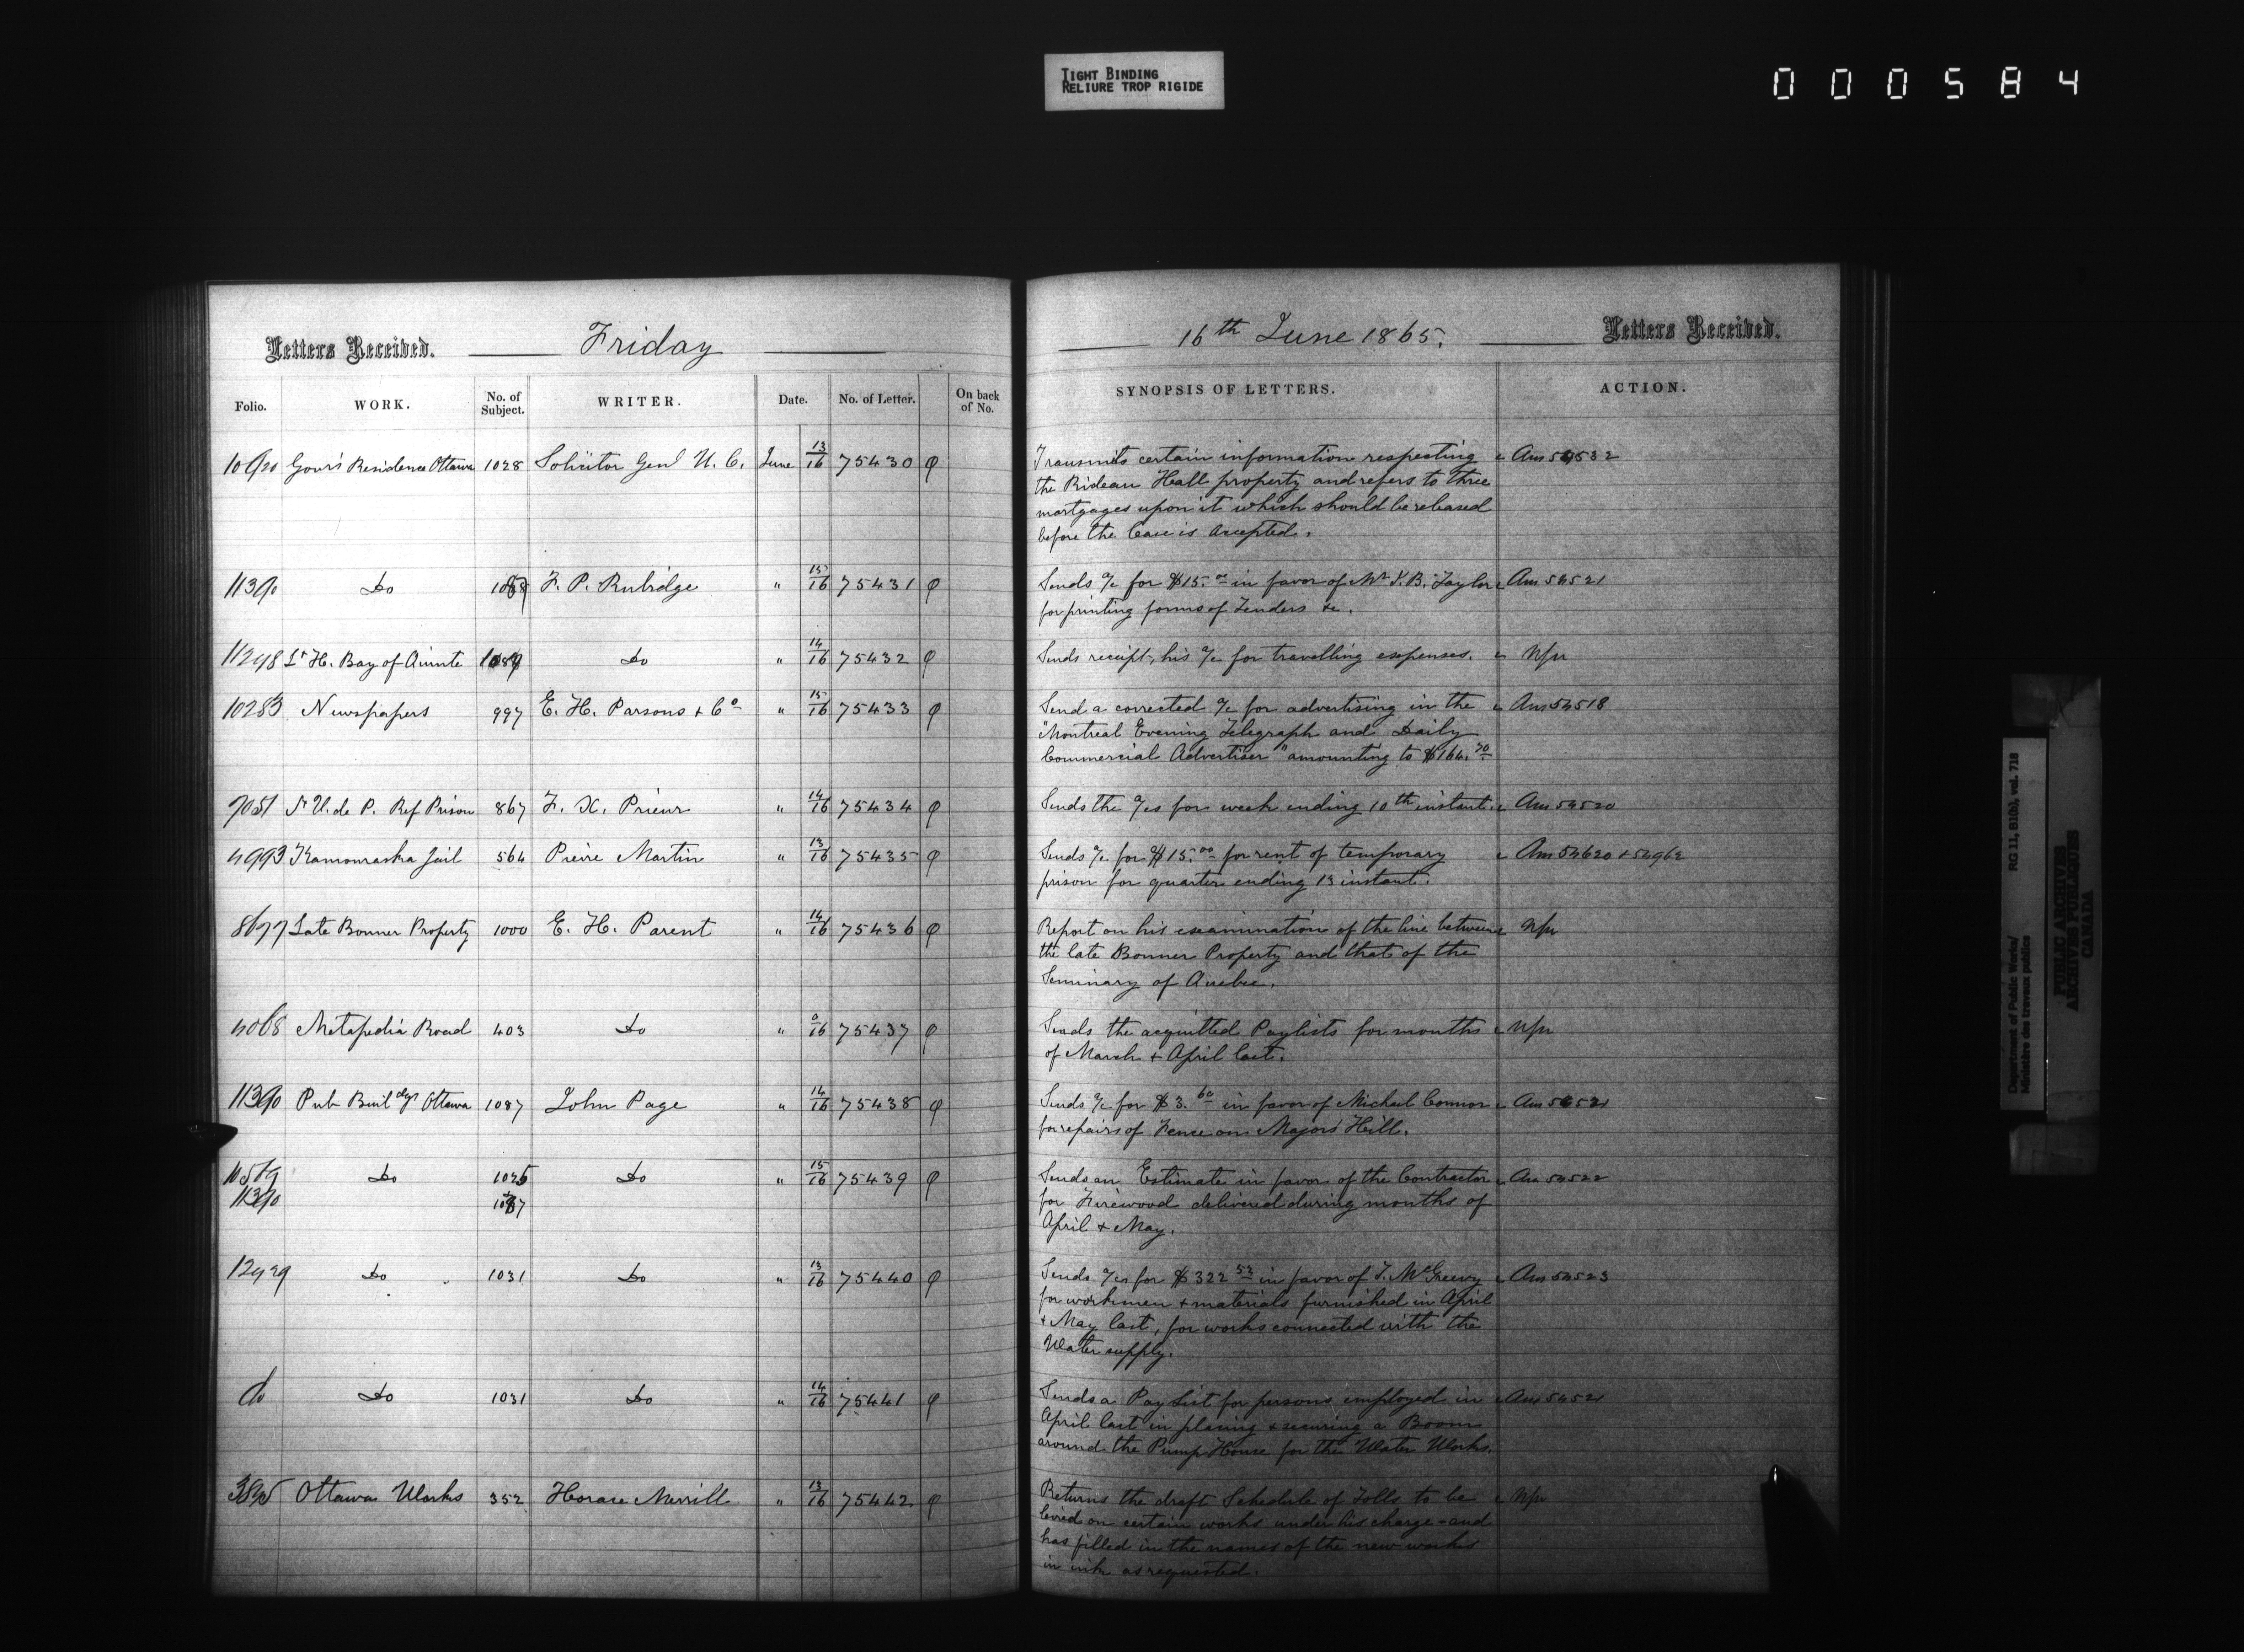 TIGHT BINDING
RELIURE TROP RIGIDE
000584
Letters Received. Friday
16th June 1865. Letters Received.
Folio. WORK. No. of Subject. WRITER. Date. No. of Letter. On back of No.
SYNOPSIS OF LETTERS. ACTION.
Gov's Residence Ottawa 1028 Solicitor Genl U. C. June 13/16 75430
Transmits certain information respecting
the Rideau Hall property and refers to three
mortgages upon it which should be released
before the Case is accepted.
11390 Do F. P. Rubidge " 15/16 75431
Sends a/c for $15.00 in favor of Mr Taylor Ans 54521
for printing forms of Tenders &c.
11248 Lt H. Bay of Quinte 1089 Do " 14/16 75432
Sends receipt, his a/c for travelling expenses.
10283 Newspapers 997 E. H. Parsons & Co " 15/16 75433
Send a corrected a/c for advertising in the Ans 54518
"Montreal Evening Telegraph and Daily
Commercial Advertiser" amounting to $164.70
St V. de P. Ref Prison 867 F. X. Prieur " 14/16 75434
Sends the a/cs for week ending 10th instant. Ans 54520
4993 Kamouraska Jail 564 Pierre Martin " 13/16 75435
Sends a/c for $15.00 for rent of temporary Ans 54620 & 54962
prison for quarter ending 13 instant.
Late Bonner Property 1000 E. H. Parent " 14/16 75436
Report on his examination of the line between
the late Bonner Property and that of the
Seminary of Quebec.
4068 Metapedia Road 403 Do " 0/16 75437
Sends the acquitted Paylists for months
of March & April last.
11390 Pub Buildgs Ottawa 1087 John Page " 14/16 75438
Sends a/c for $3.60 in favor of Michael Connor Ans 54521
for repairs of Fence on Majors Hill.
Do Do " 15/16 75439
Sends an Estimate in favor of the Contractor Ans 54522
11390 1087
for Firewood delivered during months of
April & May.
Do 1031 Do " 13/16 75440
Sends a/cs for $322.53 in favor of T. McGreevy Ans 54523
for workmen & materials furnished in April
& May last, for works connected with the
Water supply.
do Do 1031 Do " 14/16 75441
Sends a Pay List for persons employed in Ans 54521
April last in placing & securing a Boom
around the Pump House for the Water Works.
Ottawa Works 352 Horace Merrill " 13/16 75442
Returns the draft Schedule of Tolls to be
levied on certain works under his charge - and
has filled in the names of the new works
in ink as requested.
Department of Public Works/ RG 11, B1(b), vol. 718
Ministère des travaux publics
PUBLIC ARCHIVES
ARCHIVES PUBLIQUES
CANADA